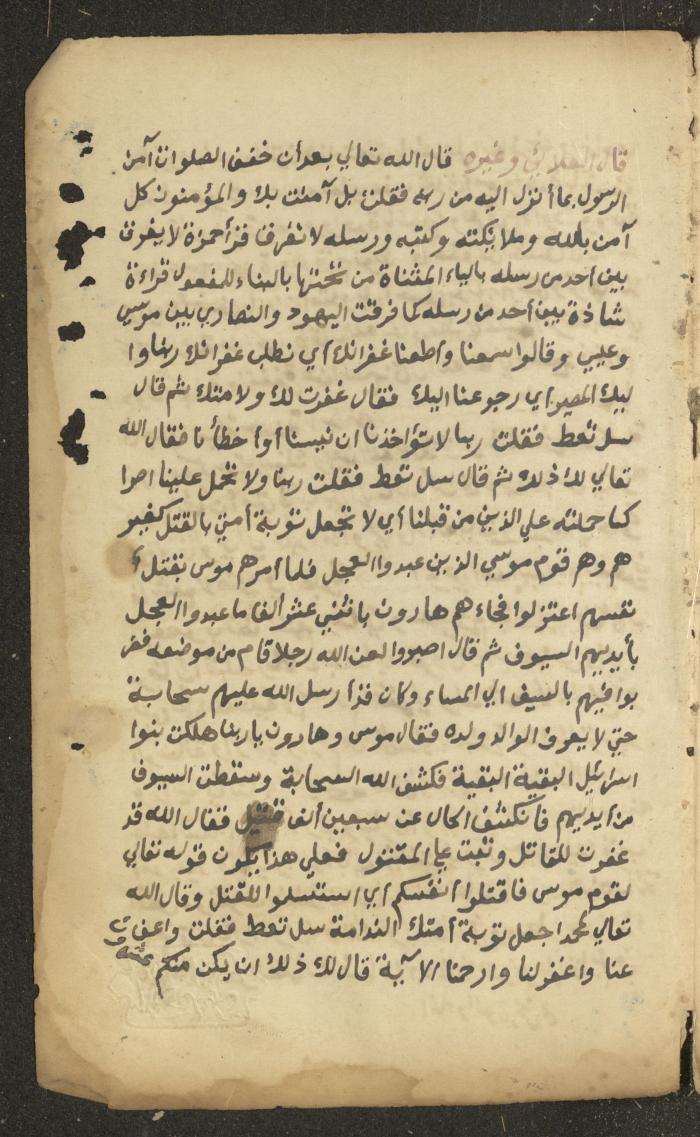 قال العلائي وغيره قال الله تعالي بعد أن خفف الصلوات آمن
الرسول بما أنزل اليه من ربه فقلت بل آمنت بك والمؤمنون كل
آمن بالله وملايكته وكتبه ورسله لا نفرق قرأ حمزة لا يفرق
بين احد من رسله بالياء المثناة من تحتها بالبناء للمفعول قراءة
شاذة بين أحد من رسله كما فرقت اليهود والنصاري بين موسي
وعيسي وقالوا سمعنا وأطعنا غفرانك أي نطلب غفرانك ربنا وا
ليك المصير أي رجوعنا اليك فقال غفرت لك ولامتك ثم قال
سل تعط فقلت ربنا لا تؤاخذنا ان نسينا أو أخطأنا فقال الله
تعالي لك ذلك ثم قال سل تعط فقلت ربنا ولا تحمل علينا اصرا
كما حملته علي الذين من قبلنا أي لا تجعل توبة أمتي بالقتل كغير
هم وهم قوم موسي الذين عبدوا العجل فلما أمرهم موسي بقتل أ
نفسهم اعتزلوا فجاءهم هارون باثني عشر ألفا ما عبدوا العجل
بأيديهم السيوف ثم قال اصبروا لعن الله رجلا قام من موضعه فضر
بوا فيهم بالسيف الي المساء وكان قد أرسل الله عليهم سحابة
حتي لا يعرف الوالد ولده فقال موسي وهارون يا ربنا هلكت بنوا
اسرائيل البقية البقية فكشف الله السحابة وسقطت السيوف
من أيديهم فانكشف الحال عن سبعين ألف قتيل فقال الله قد
غفرت للقاتل وتبت علي المقتول فعلي هذا يكون قوله تعالي
لقوم موسي فاقتلوا أنفسكم أي استسلموا للقتل وقال الله
تعالي لمحمد اجعل توبة أمتك الندامة سل تعط فقلت واعف
عنا واغفر لنا وارحمنا الآية قال لك ذلك ان يكن منكم